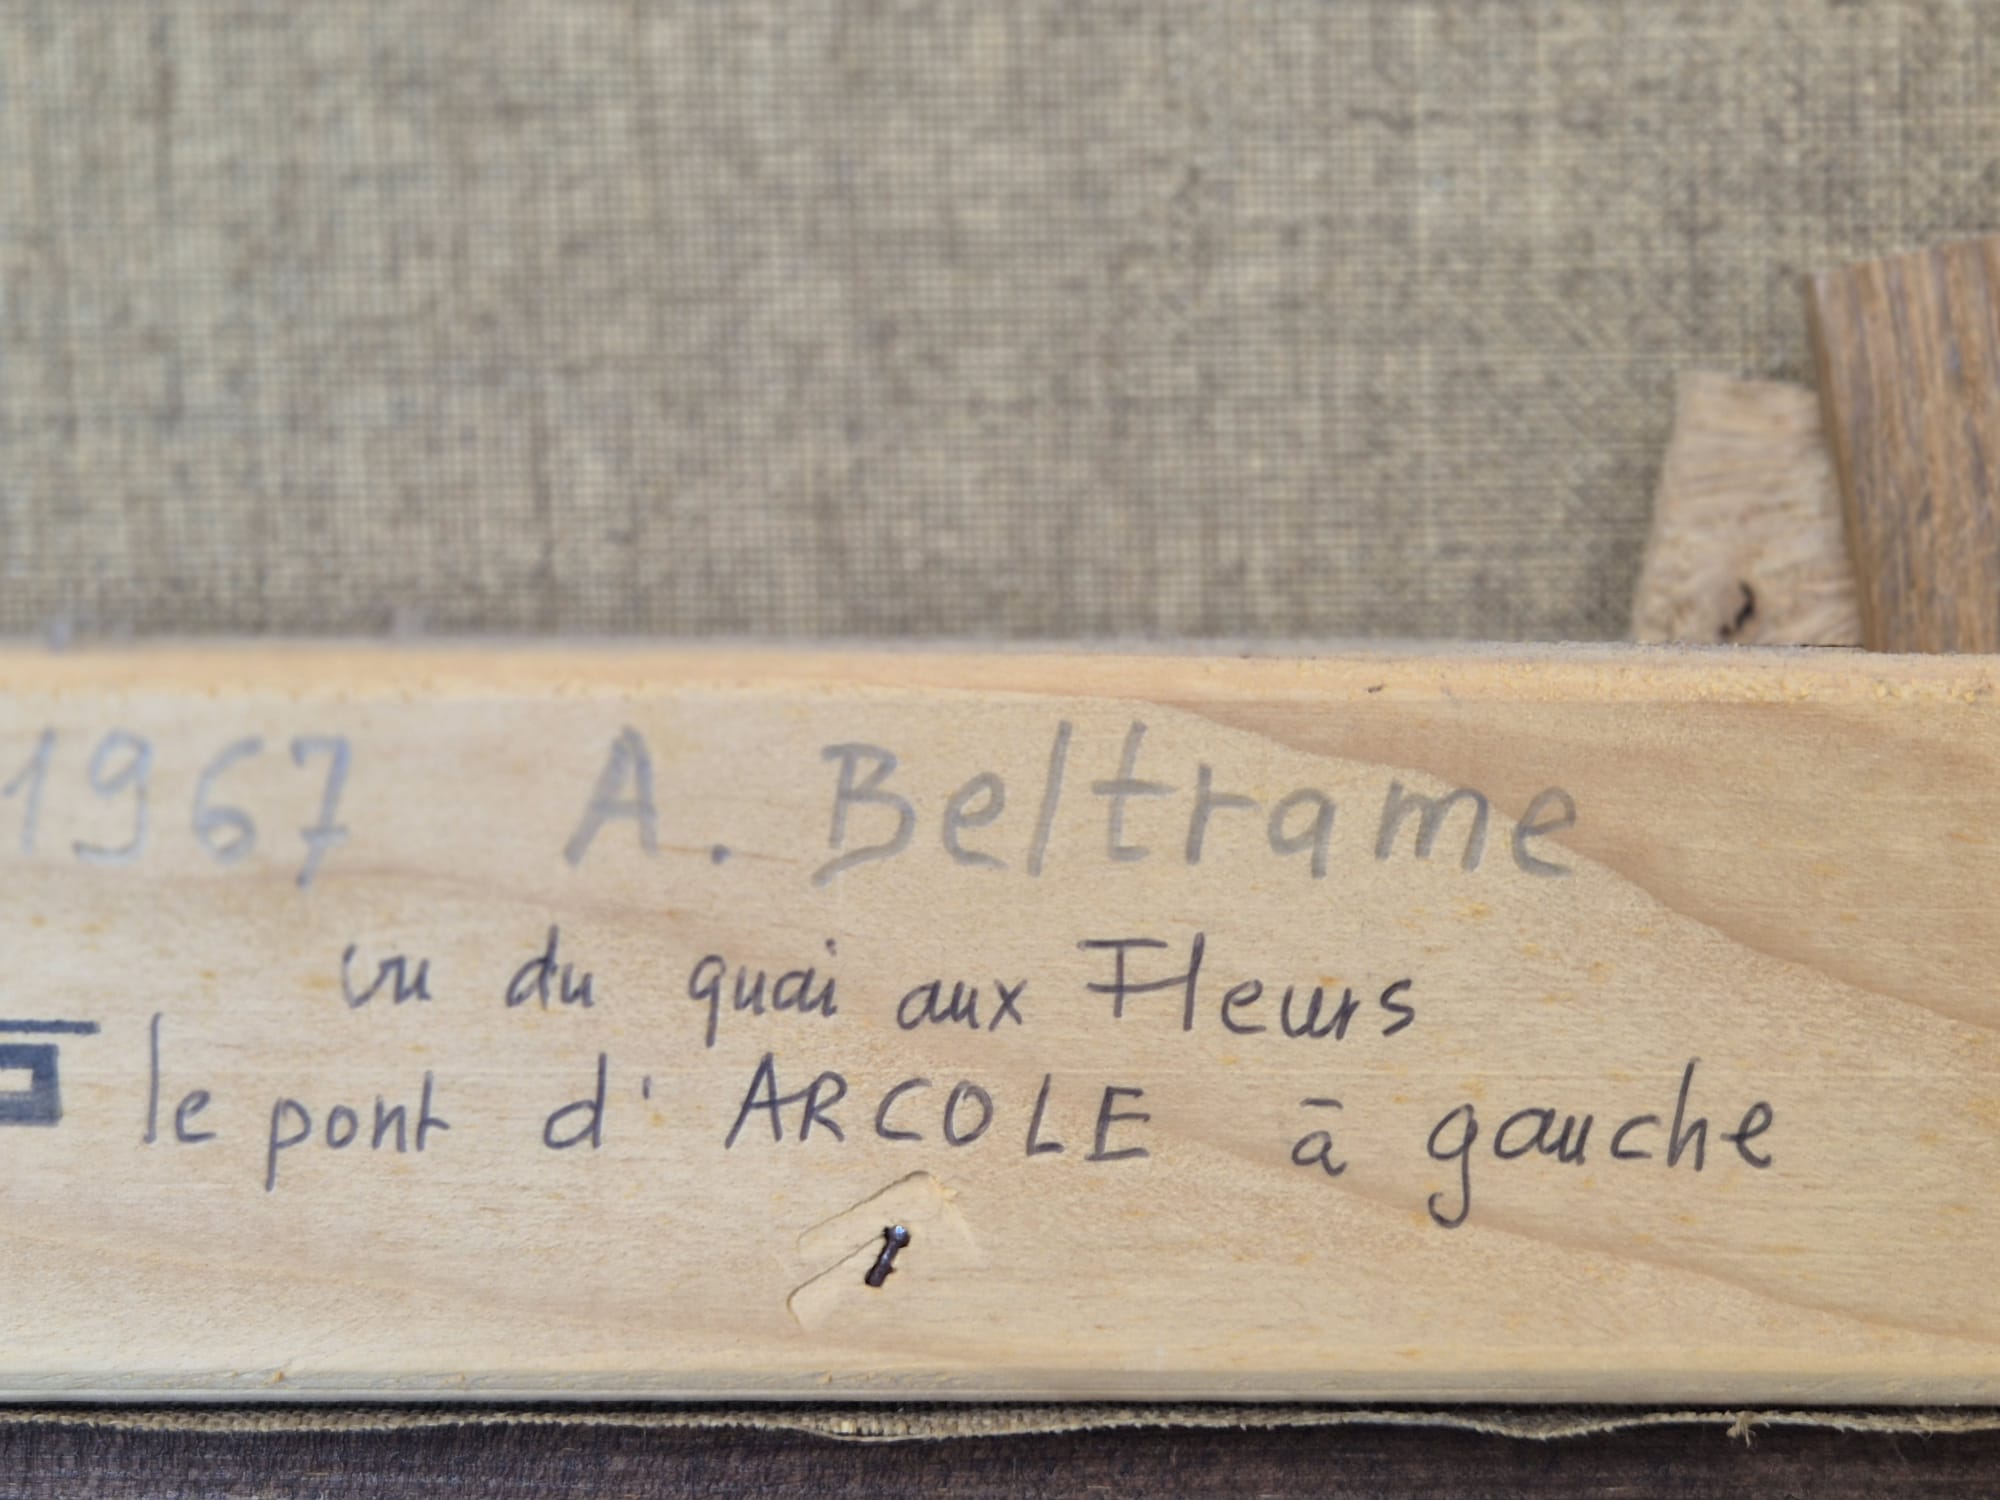 1967 A. Beltrame
vu du quai aux Fleurs
le pont d'ARCOLE à gauche